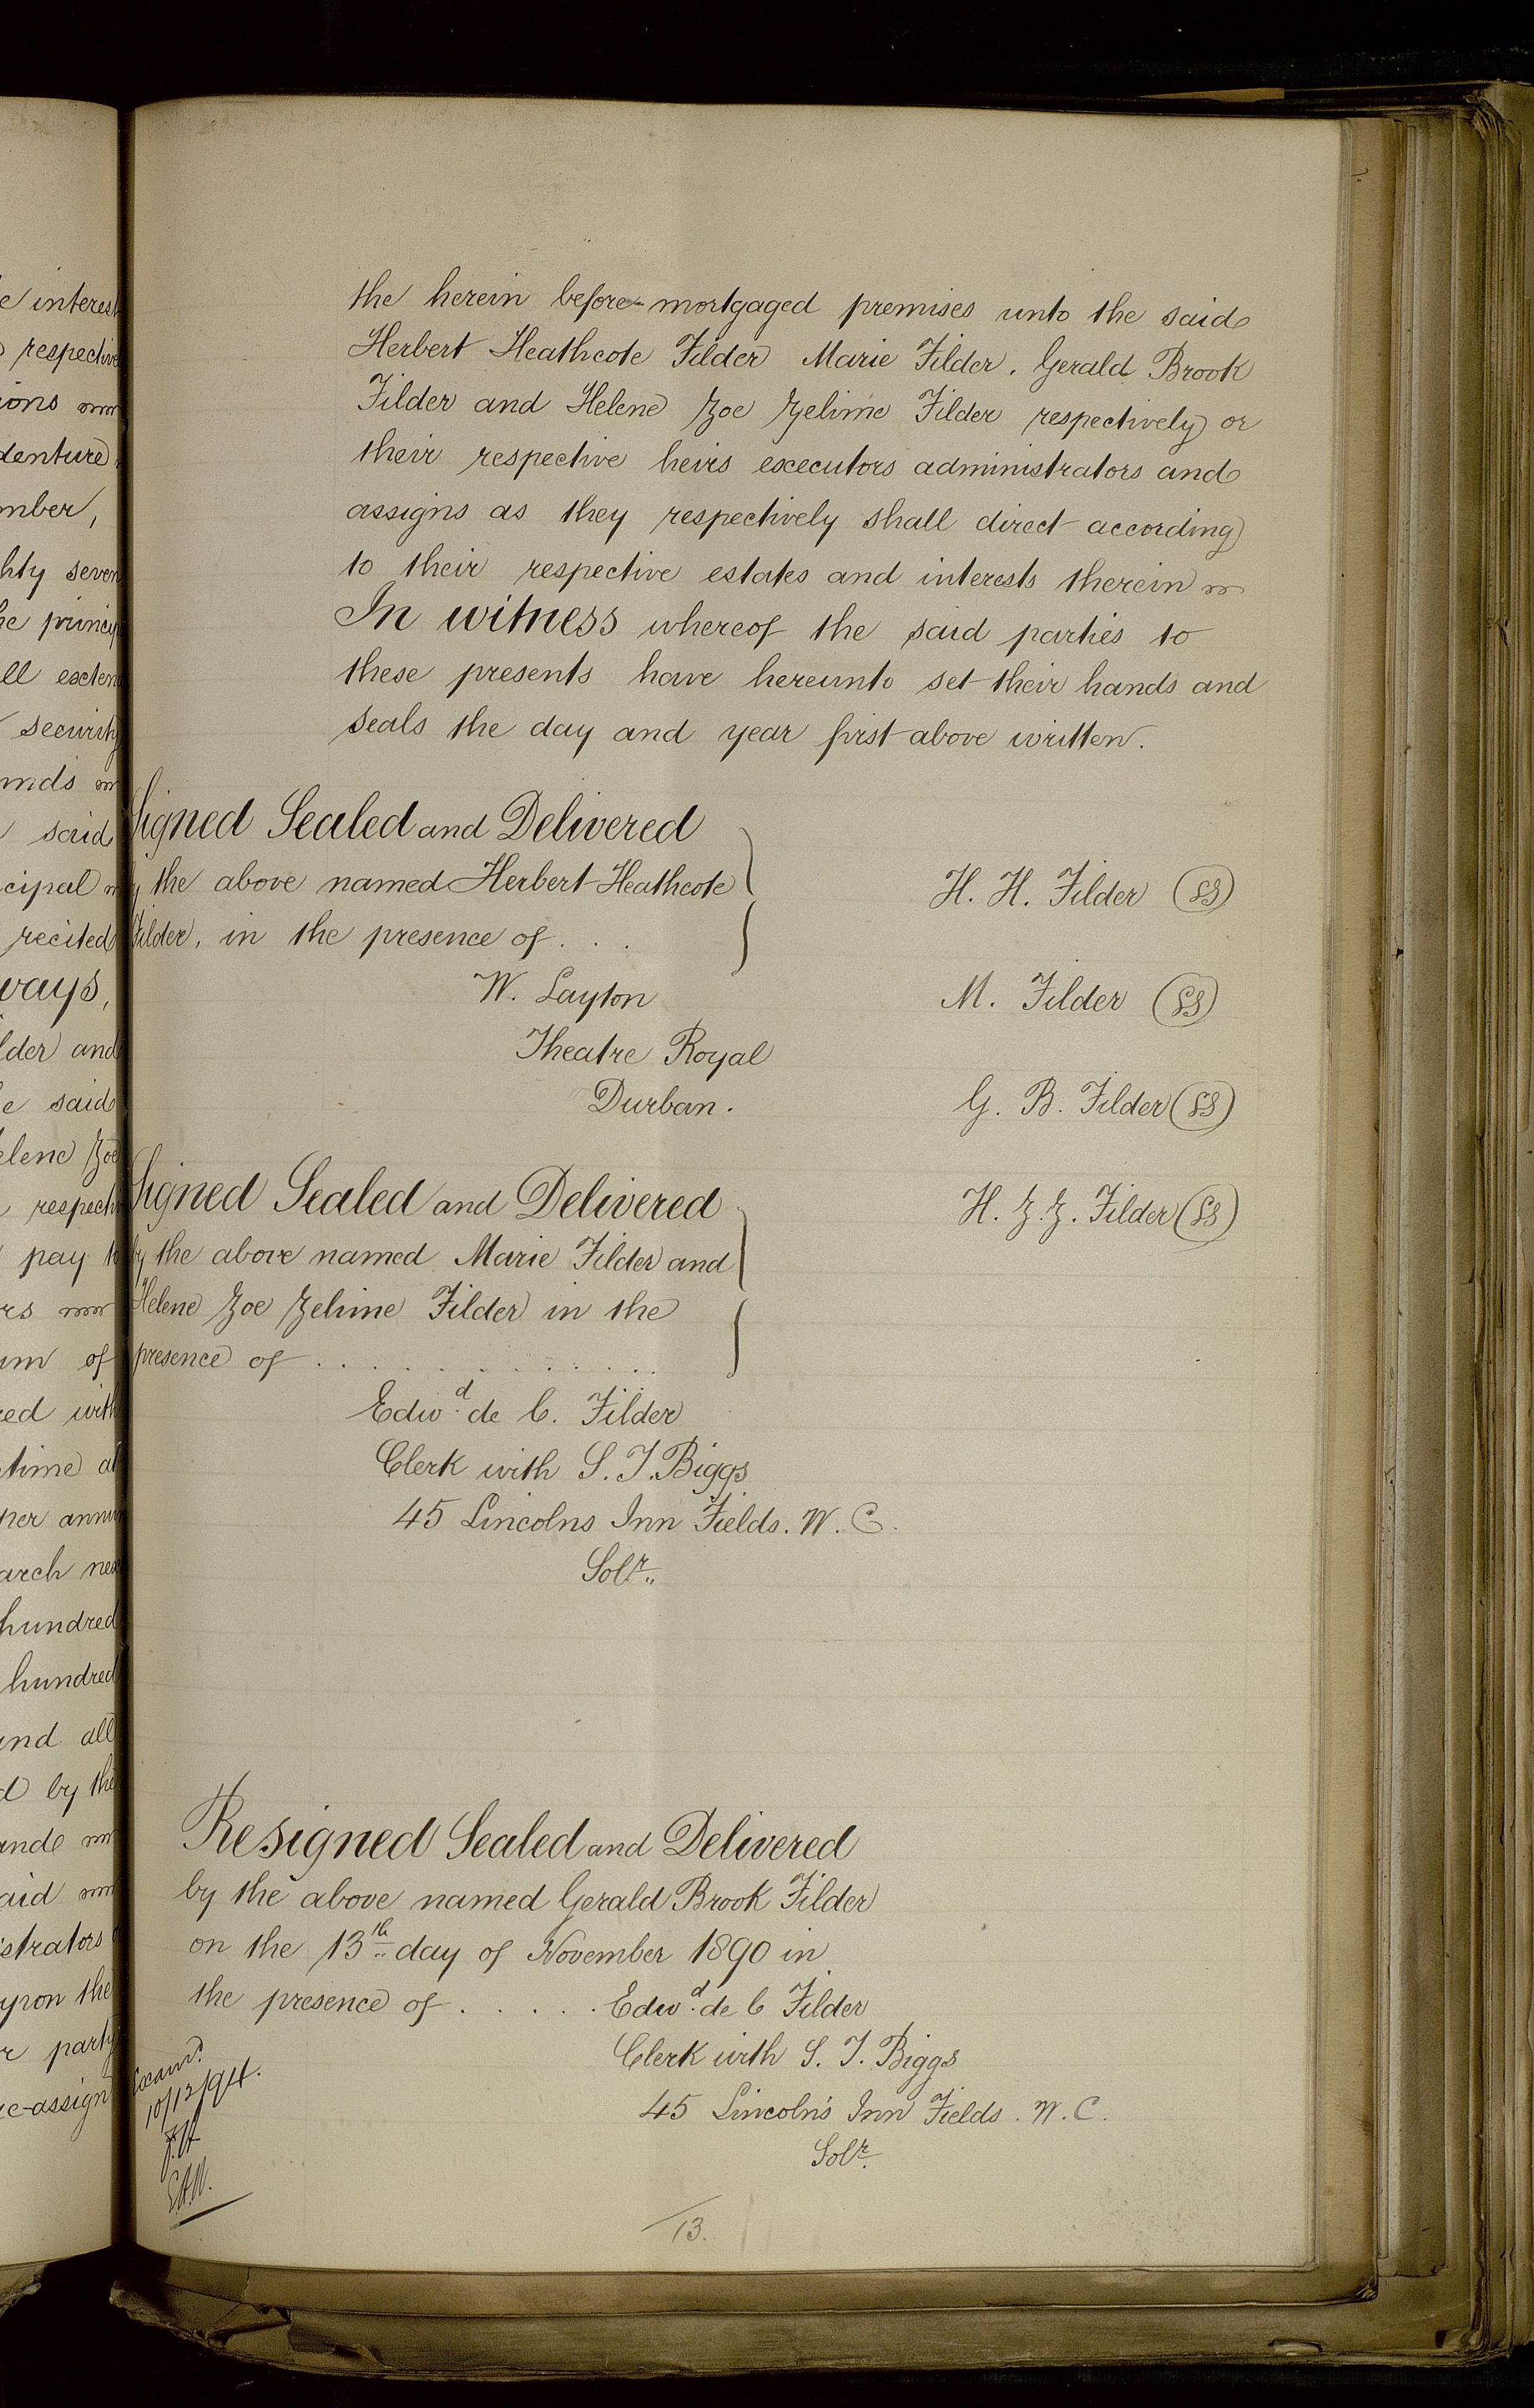 e interest
respective
ions
denture
mber,
hty seven
he princip
ll exten
security
unds
said
cipal
recited
ways,
lder and
e said
elene Zoe
respecti
pay to
rs
um of
red with
time at
per annum
arch nex
hundred
hundred
and all
d by the
ande
aid
istrators
upon the
r party
re-assign
the herein before-mortgaged premises unto the said
Herbert Heathcote Filder Marie Filder, Gerald Brook
Filder and Helene Zoe Zelime Filder respectively or
their respective heirs executors administrators and
assigns as they respectively shall direct according
to their respective estates and interests therein
In witness whereof the said parties to
these presents have hereunto set their hands and
seals the day and year first above written.
Signed Sealed and Delivered
by the above named Herbert Heathcote
Filder, in the presence of . . .
W. Layton
Theatre Royal
Durban.
H. H. Filder (LS)
M. Filder (LS)
G. B. Filder (LS)
H. Z. Z. Filder (LS)
Signed Sealed and Delivered
by the above named Marie Filder and
Helene Zoe Zelime Filder in the
presence of . . . . . . . . . . . .
Edwd. de C. Filder
Clerk with S. J. Biggs
45 Lincolns Inn Fields. W. C.
Solr.
Resigned Sealed and Delivered
by the above named Gerald Brook Filder
on the 13th day of November 1890 in
the presence of . . . . . Edwd. de C Filder
Clerk with S. J. Biggs
45 Lincoln's Inn Fields. W. C.
Solr.
Examd.
10/12/94.
13.